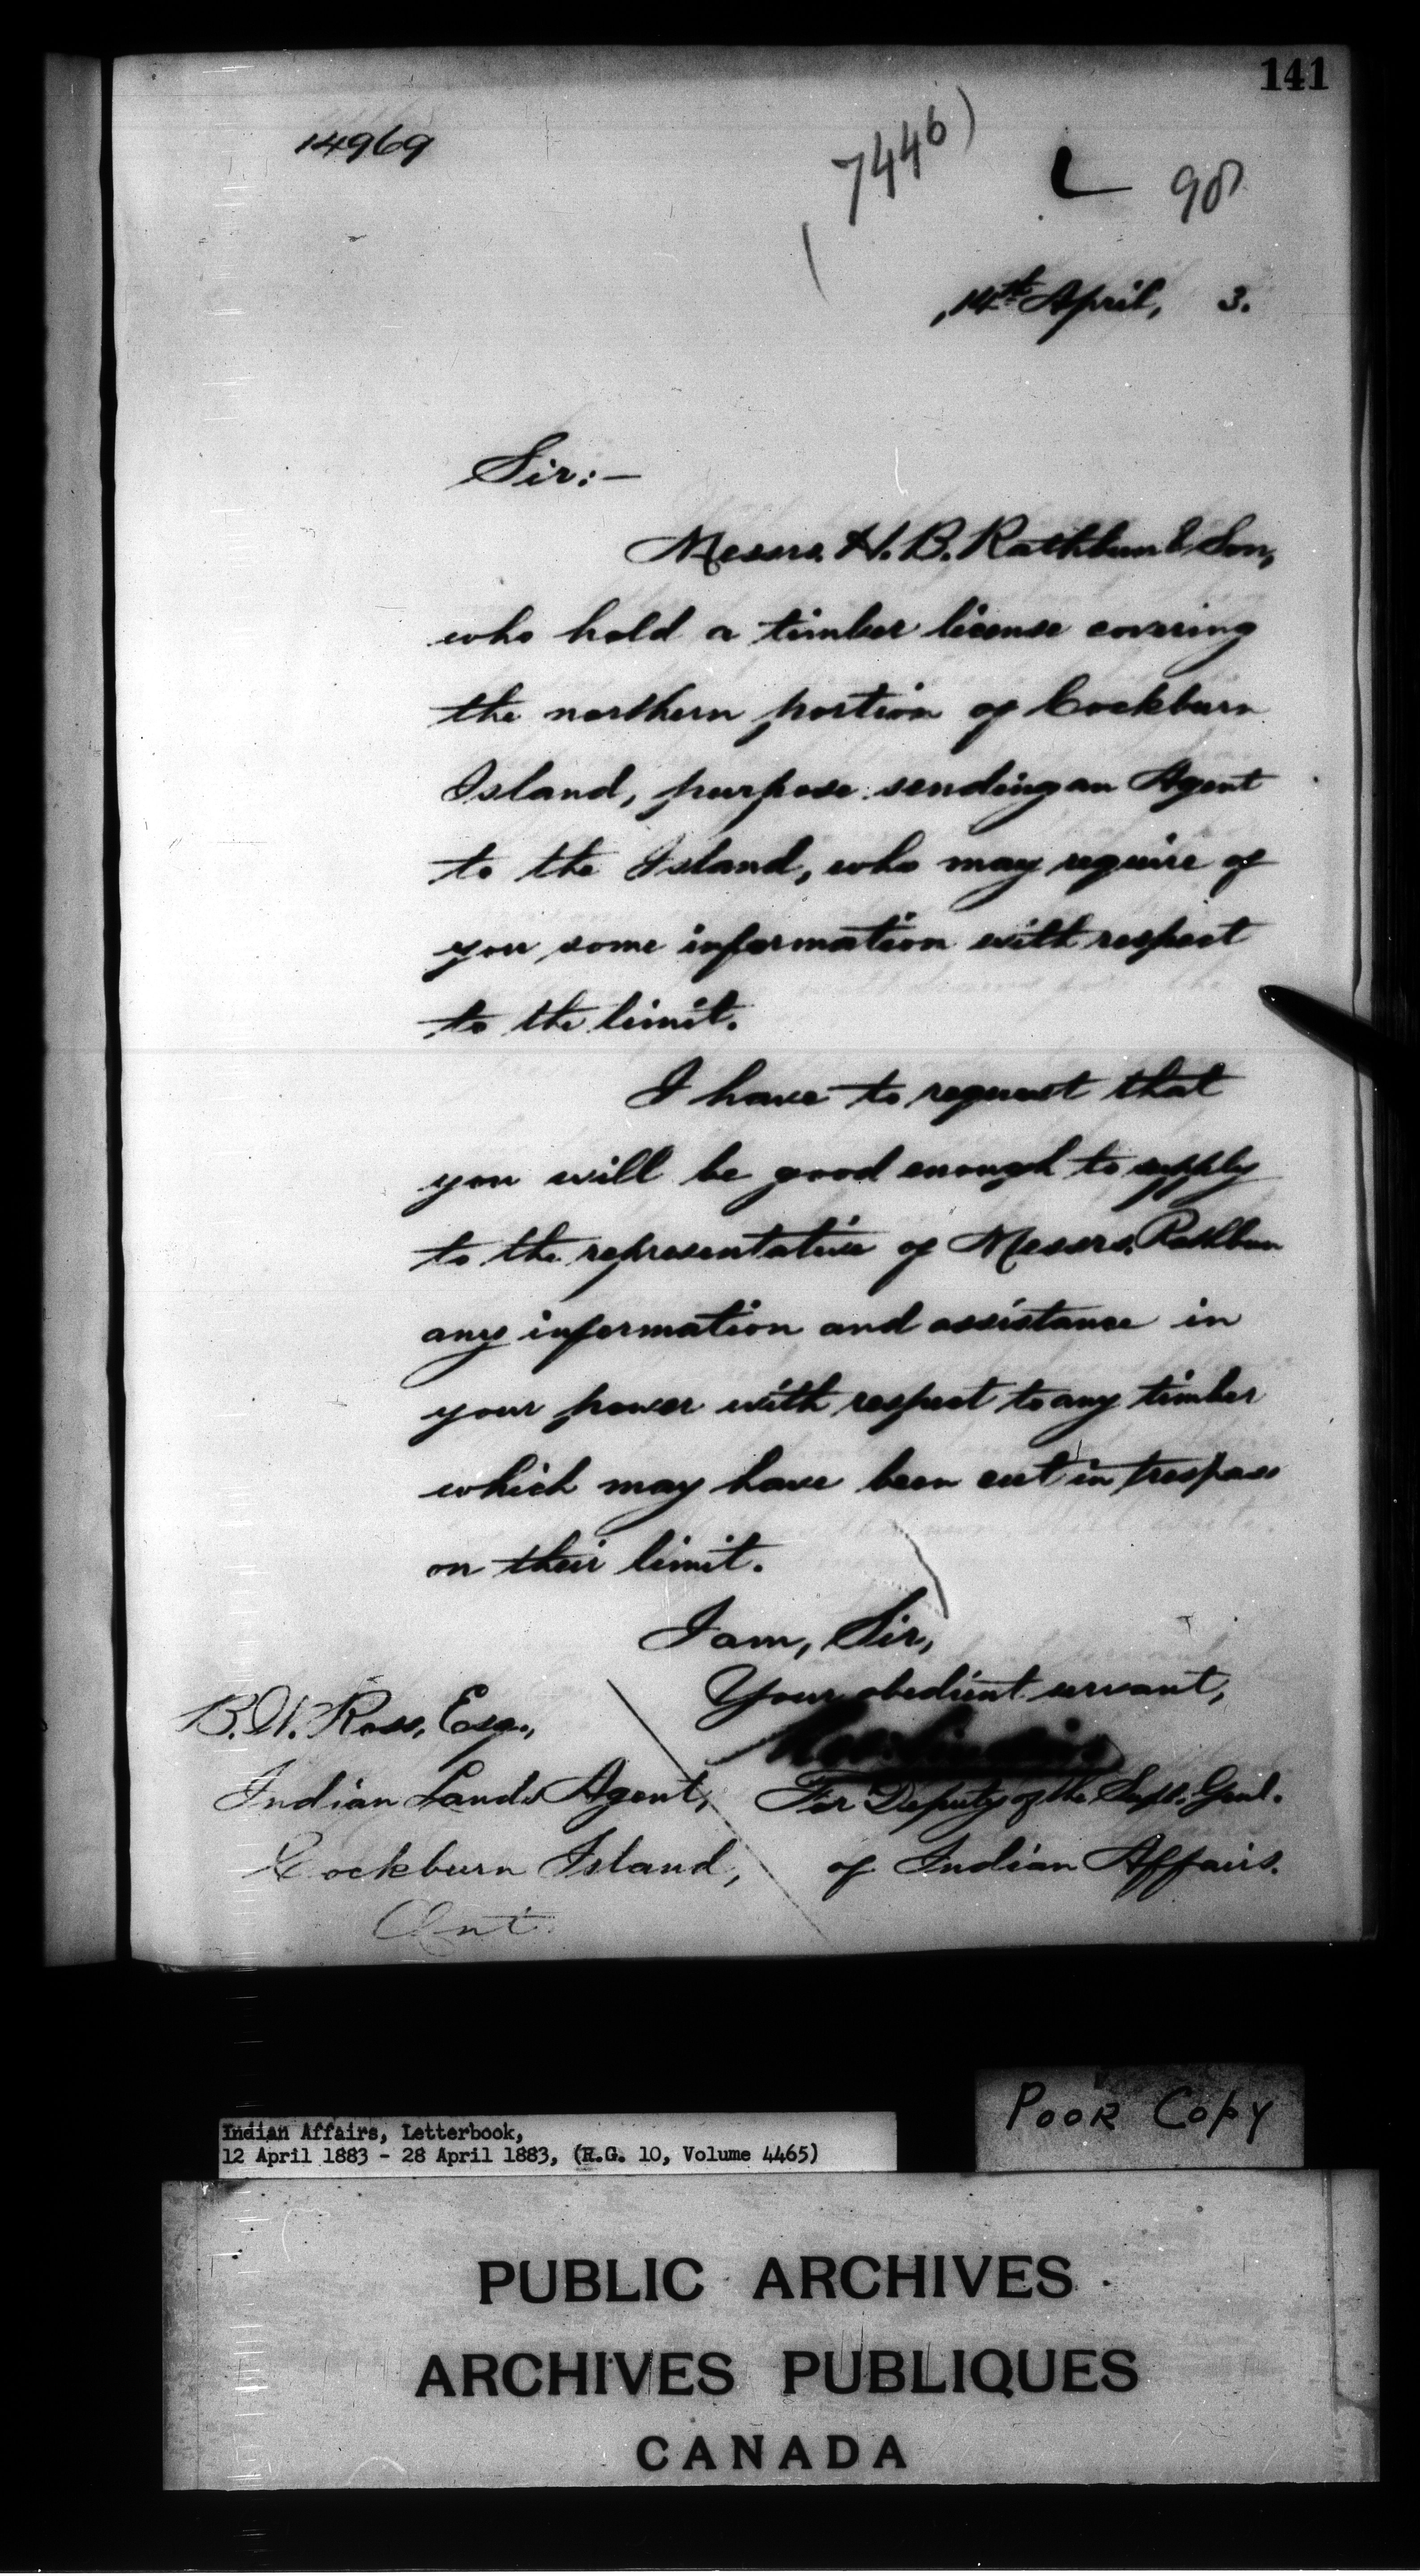 141
14969
7446)
L 90
14th April, 3.
Sir:—
Messrs. H. B. Rathbun & Son,
who hold a timber license covering
the northern portion of Cockburn
Island, purpose sending an Agent
to the Island, who may require of
you some information with respect
to the limit.
I have to request that
you will be good enough to supply
to the representative of Messrs. Rathbun
any information and assistance in
your power with respect to any timber
which may have been cut in trespass
on their limit.
I am, Sir,
Your obedient servant,
B. W. Ross, Esq.,
Indian Lands Agent, For Deputy of the Supt. Genl.
Cockburn Island, of Indian Affairs.
Ont.
Poor Copy
Indian Affairs, Letterbook,
12 April 1883 - 28 April 1883, (R.G. 10, Volume 4465)
PUBLIC ARCHIVES
ARCHIVES PUBLIQUES
CANADA